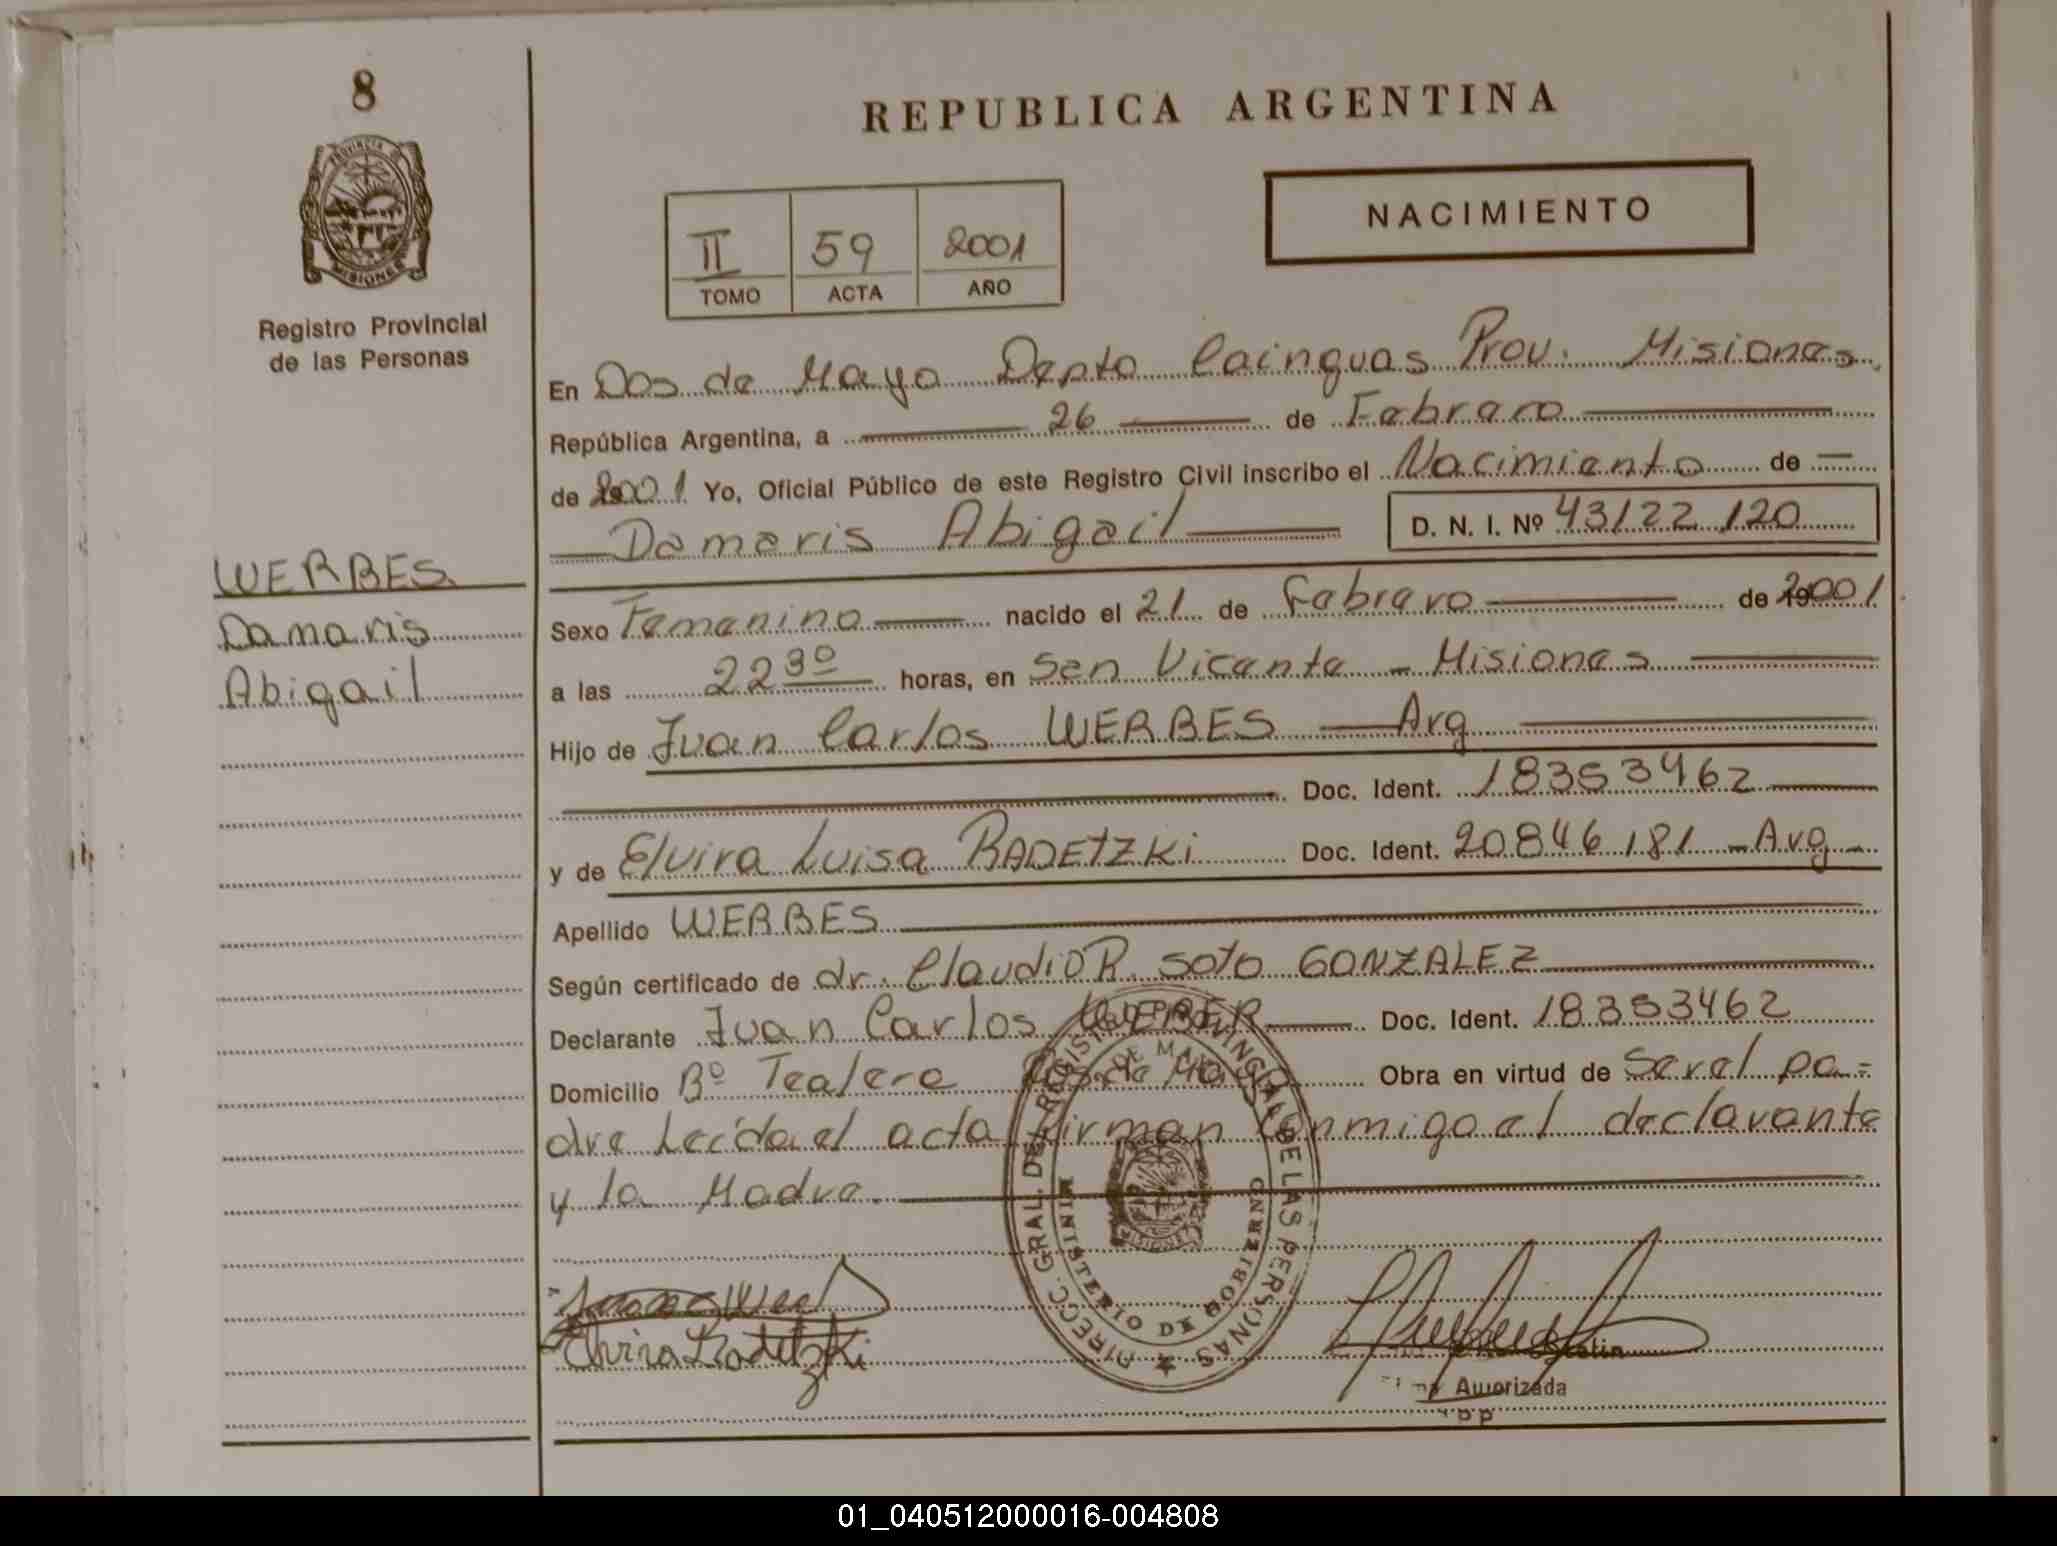 8
REPUBLICA ARGENTINA
NACIMIENTO
II 59 2001
TOMO ACTA AÑO
PROVINCIA DE
MISIONES
Registro Provincial
de las Personas
En Dos de Mayo Depto Cainguas Prov. Misiones
República Argentina, a 26 de Febrero
de 2001 Yo, Oficial Público de este Registro Civil inscribo el Nacimiento de
Damaris Abigail D. N. I. Nº 43122120
WERBES
Damaris
Abigail
Sexo Femenino nacido el 21 de Febrero de 2001
a las 22 30 horas, en San Vicente - Misiones
Hijo de Juan Carlos WERBES Arg
Doc. Ident. 18353462
y de Elvira Luisa RADETZKi Doc. Ident. 20846181 - Arg -
Apellido WERBES
Según certificado de dr. Claudio R. Soto GONZALEZ
Declarante Juan Carlos Doc. Ident. 18353462
Domicilio Bº Tealera Dos de Mayo Obra en virtud de Ser el pa=
dre Leída el acta firman conmigo el declarante
y la Madre.
DIRECC. GRAL. DEL REGISTRO PROVINCIAL DE LAS PERSONAS
DOS DE MAYO
MINISTERIO DE GOBIERNO
MISIONES
Elvira Radetzki
Autorizada
01_040512000016-004808